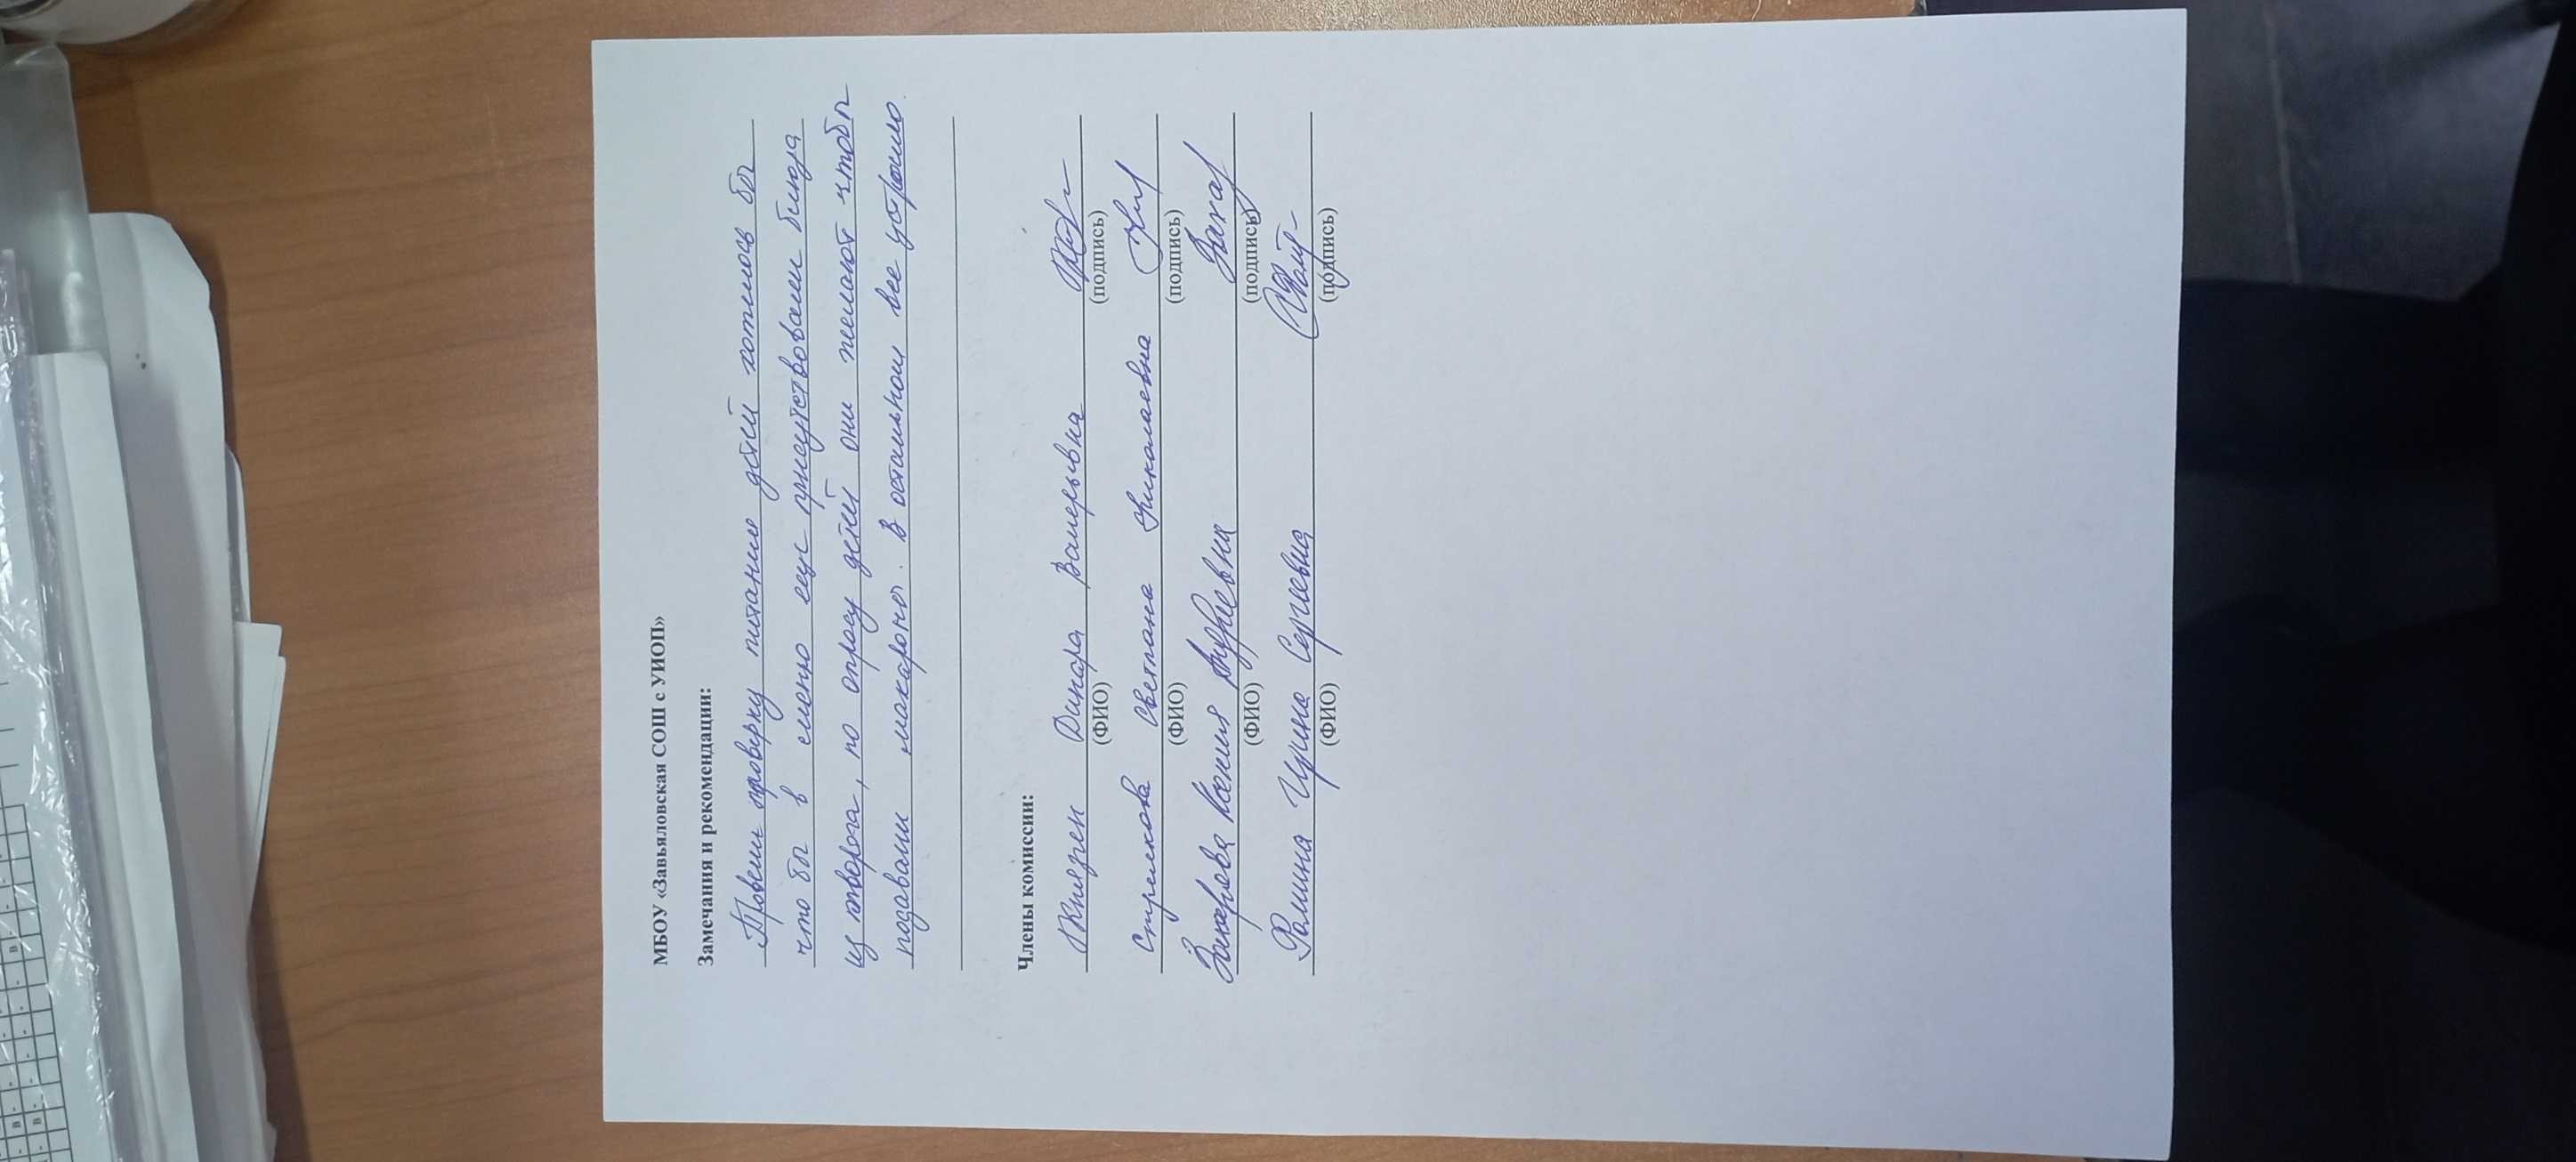 МБОУ «Завьяловская СОШ с УИОП»
Замечания и рекомендации:
Провели проверку питание детей хотилось бы
что бы в меню еще присутствовали блюда
из творога, по опросу детей они желают чтобы
подавали макароны. В остальном все устроило.
Члены комиссии:
Князген Динара Валерьевна
(ФИО) (подпись)
Стрелкова Светлана Николаевна
(ФИО) (подпись)
Захарова Ксения Андреевна Захар
(ФИО) (подпись)
Фомина Ирина Сергеевна
(ФИО) (подпись)